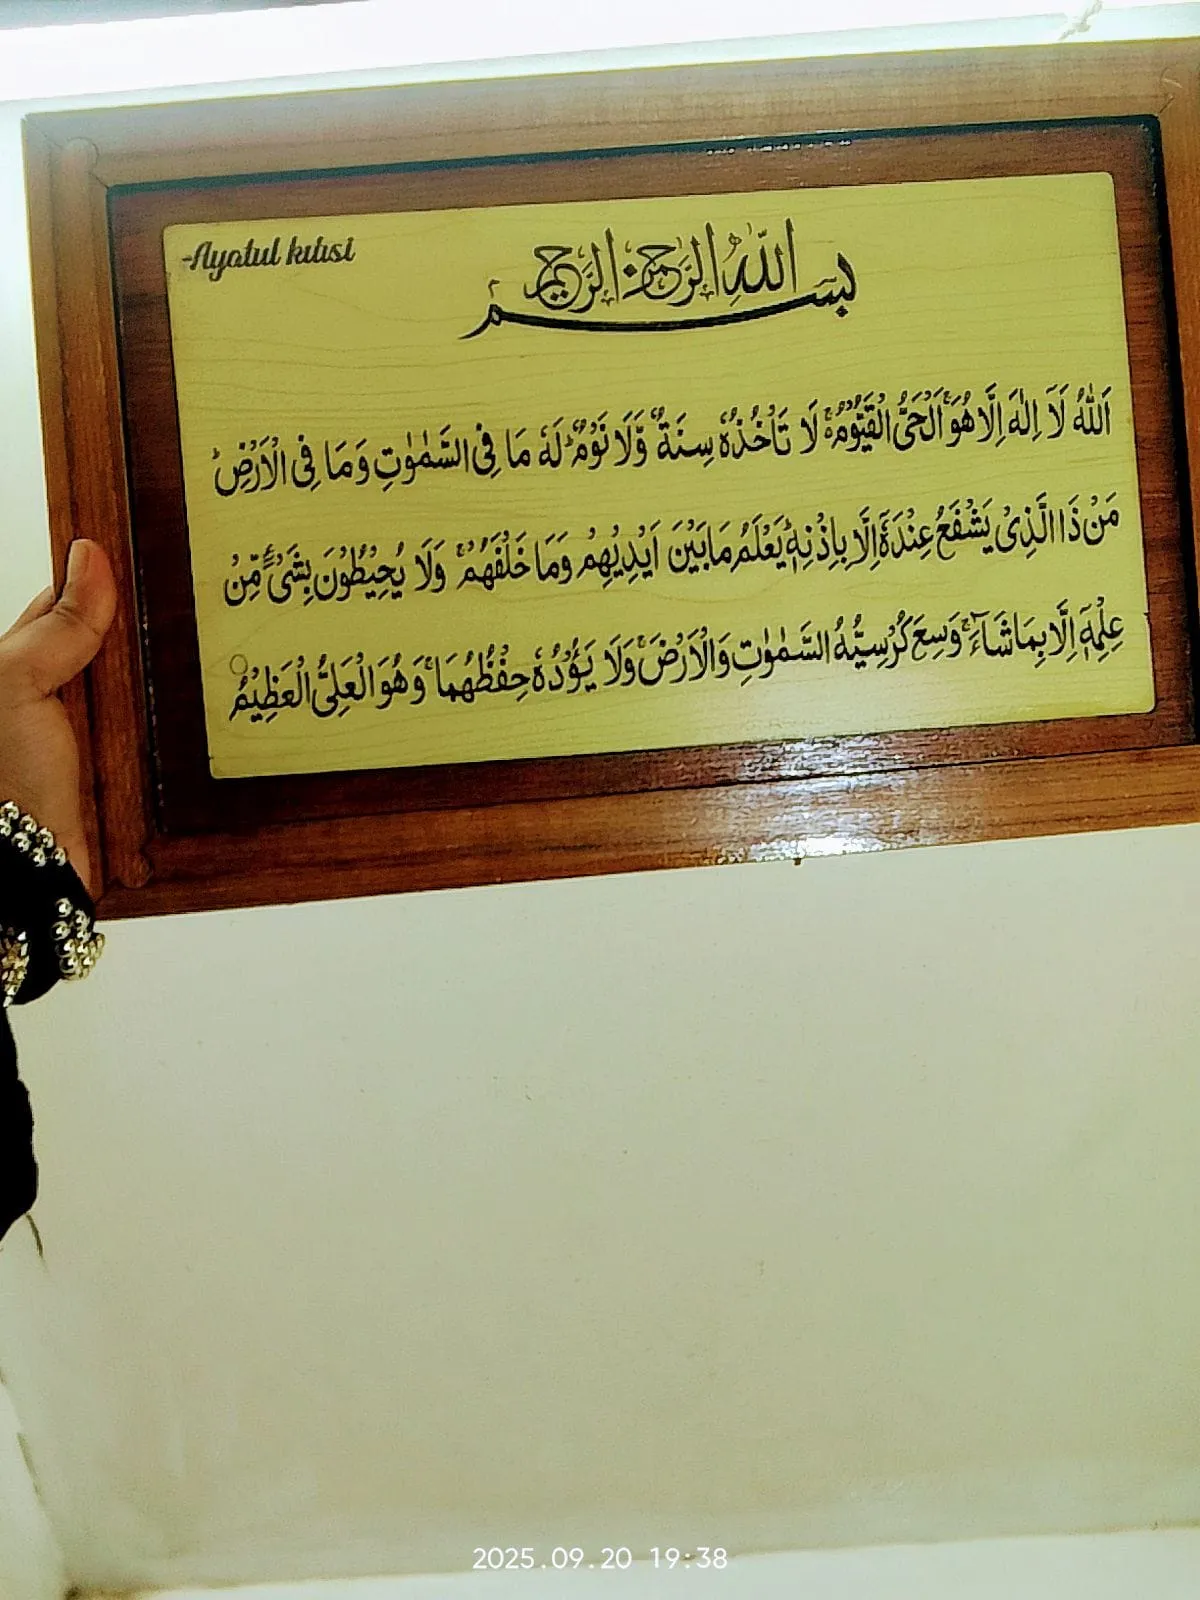 -Ayatul kursi
بسم الله الرحمن الرحيم
اَللّٰهُ لَاۤ اِلٰهَ اِلَّا هُوَۚ اَلْحَیُّ الْقَیُّوْمُ۬ۚ لَا تَاْخُذُهٗ سِنَةٌ وَّلَا نَوْمٌؕ لَهٗ مَا فِی السَّمٰوٰتِ وَمَا فِی الْاَرْضِؕ
مَنْ ذَا الَّذِیْ یَشْفَعُ عِنْدَهٗۤ اِلَّا بِاِذْنِهٖؕ یَعْلَمُ مَا بَیْنَ اَیْدِیْهِمْ وَمَا خَلْفَهُمْۚ وَلَا یُحِیْطُوْنَ بِشَیْءٍ مِّنْ
عِلْمِهٖۤ اِلَّا بِمَا شَآءَۚ وَسِعَ كُرْسِیُّهُ السَّمٰوٰتِ وَالْاَرْضَۚ وَلَا یَـُٔوْدُهٗ حِفْظُهُمَاۚ وَهُوَ الْعَلِیُّ الْعَظِیْمُ
2025.09.20 19:38